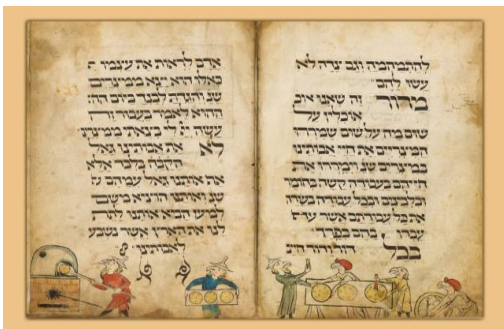 להתמהמה וגם צדה לא
עשו להם
מרור זה שאנו או
אוכלין על
שום מה על שום שמררו
המצריים את חיי אבותינו
במצרים שנ' וימררו את
חייהם בעבודה קשה בחומר
ובלבנים ובכל עבודה בשדה
את כל עבודתם אשר
עבדו בהם בפרך
בכל דור ודור
אדם לראות את עצמו
כאילו הוא יצא ממצרים
שנ' והגדת לבנך ביום הה
ההוא לאמר בעבור זה
עשה יי לי בצאתי ממצרים
לא את אבותינו גאל
הקבה בלבד אלא
את אותנו גאל עמהם
שנ' ואותנו הוציא משם
למען הביא אותנו לתת
לנו את הארץ אשר נשבע
לאבותינו